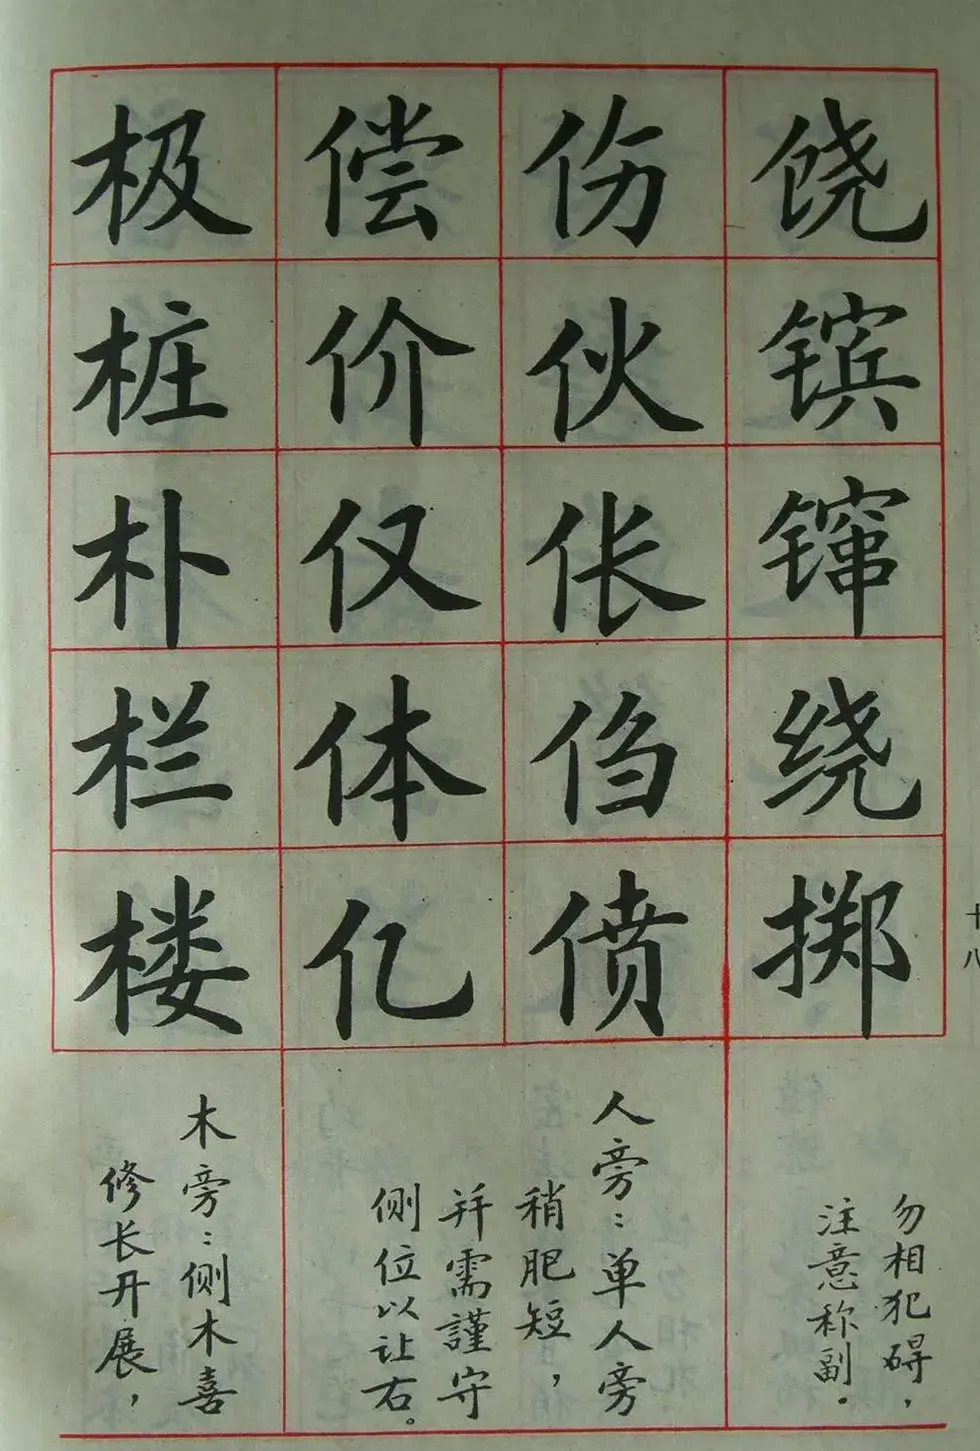 饶镔镩绕掷
勿相犯碍，
注意称副．
伤伙伥㑇偾
人旁：单人旁
稍肥短，
并需謹守
偿价仅体亿
侧位以让右。
极桩朴栏楼
木旁：侧木喜
修长开展，
十八